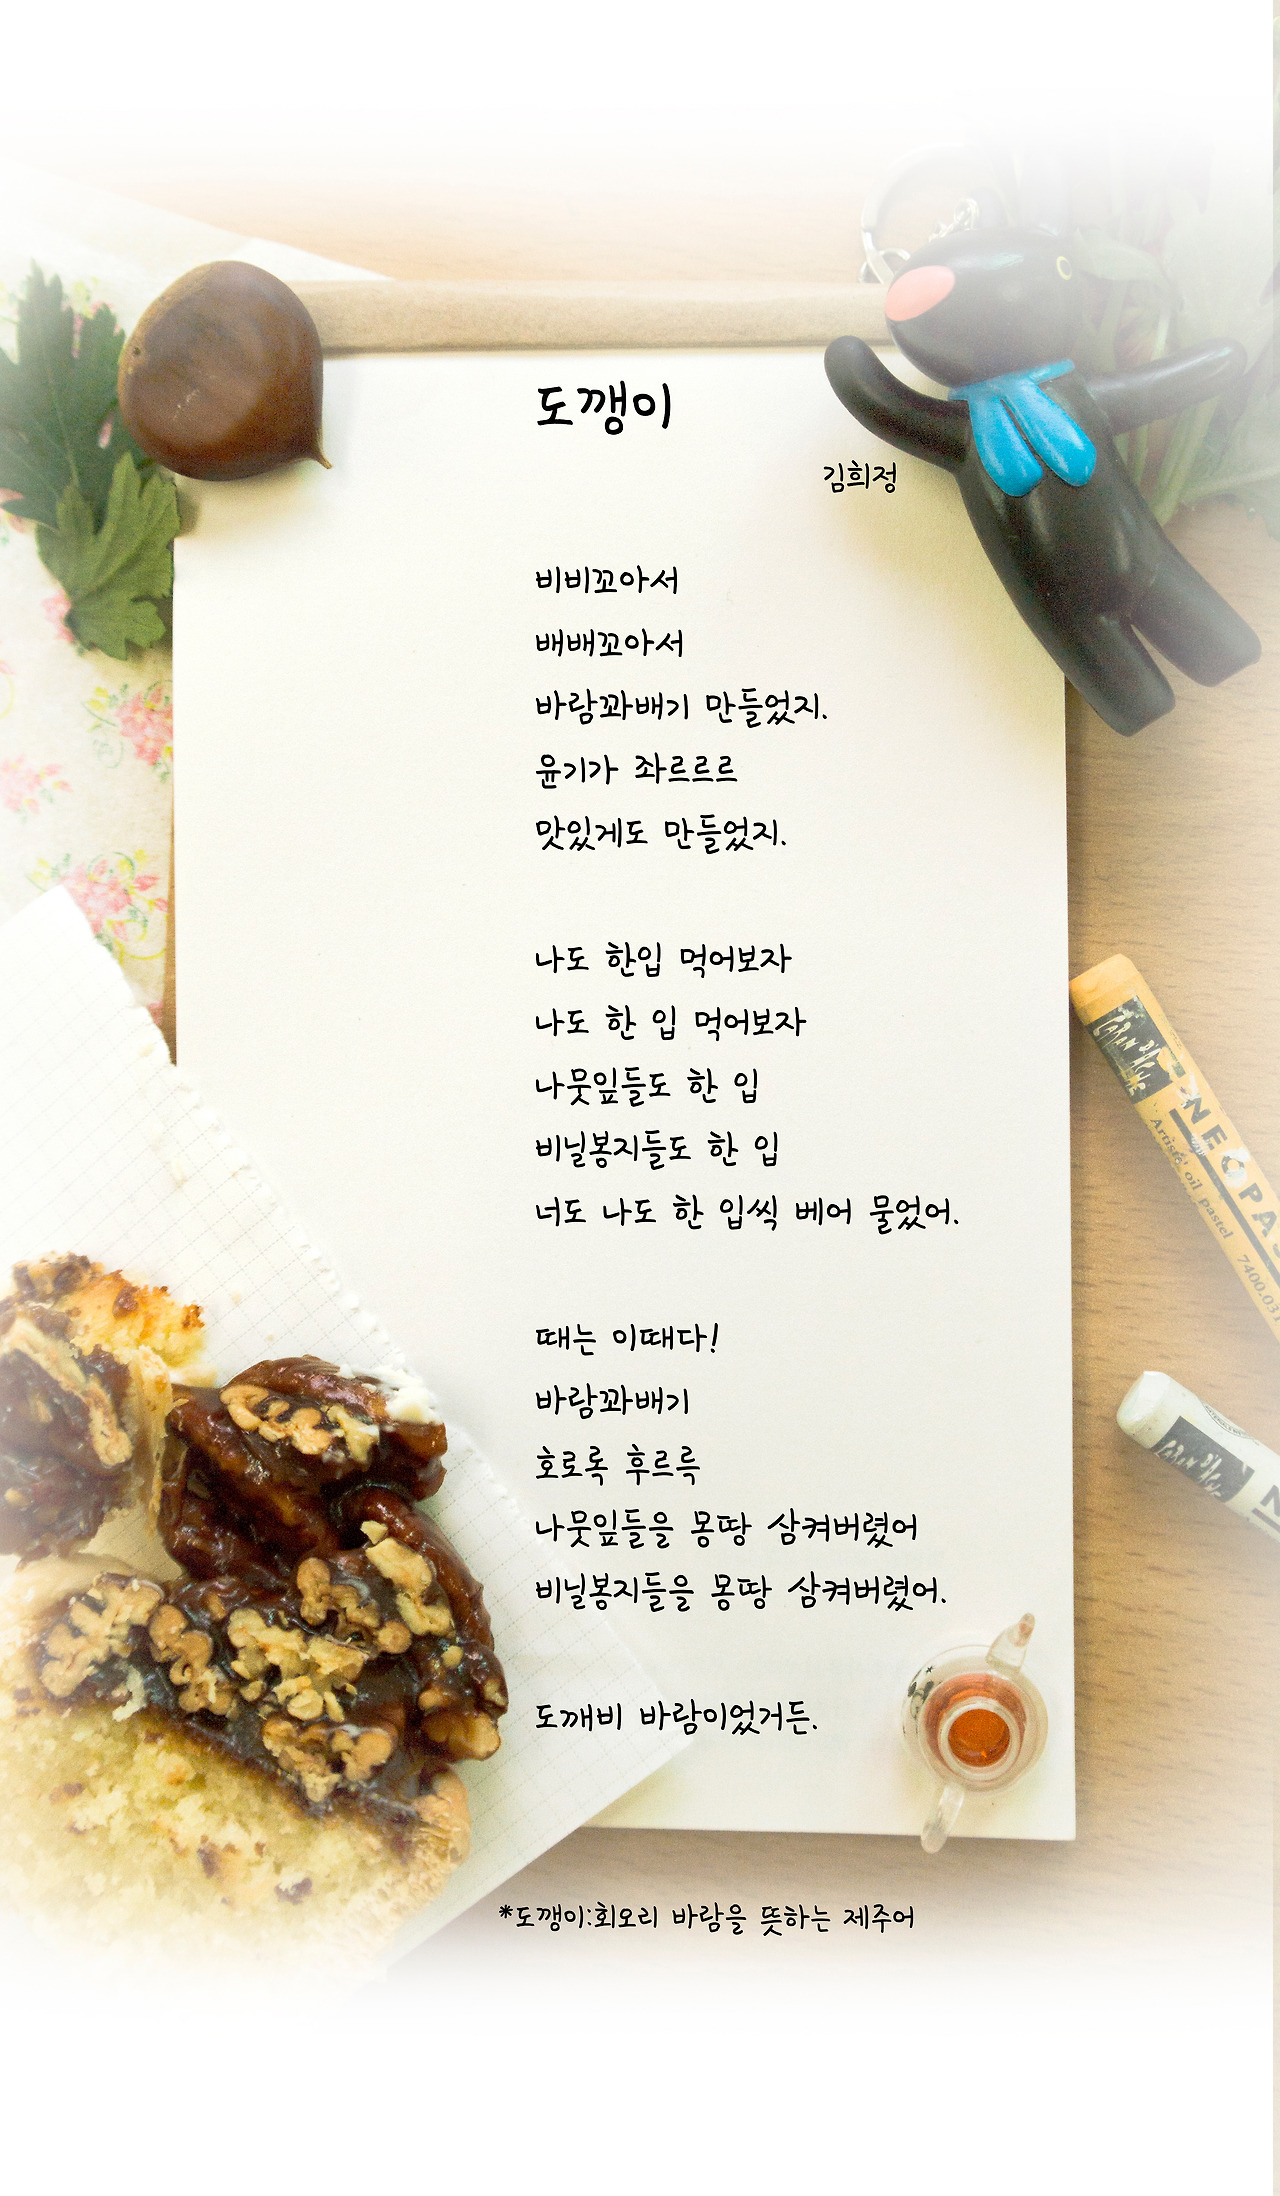 도깽이
김희정
비비꼬아서
배배꼬아서
바람꽈배기 만들었지.
윤기가 좌르르르
맛있게도 만들었지.
나도 한입 먹어보자
나도 한 입 먹어보자
나뭇잎들도 한 입
비닐봉지들도 한 입
너도 나도 한 입씩 베어 물었어.
때는 이때다!
바람꽈배기
호로록 후르륵
나뭇잎들을 몽땅 삼켜버렸어
비닐봉지들을 몽땅 삼켜버렸어.
도깨비 바람이었거든.
*도깽이:회오리 바람을 뜻하는 제주어
CARAN D'ACHE
NEOPAS
Artists' oil pastel 7400.031
CARAN D'ACHE
N